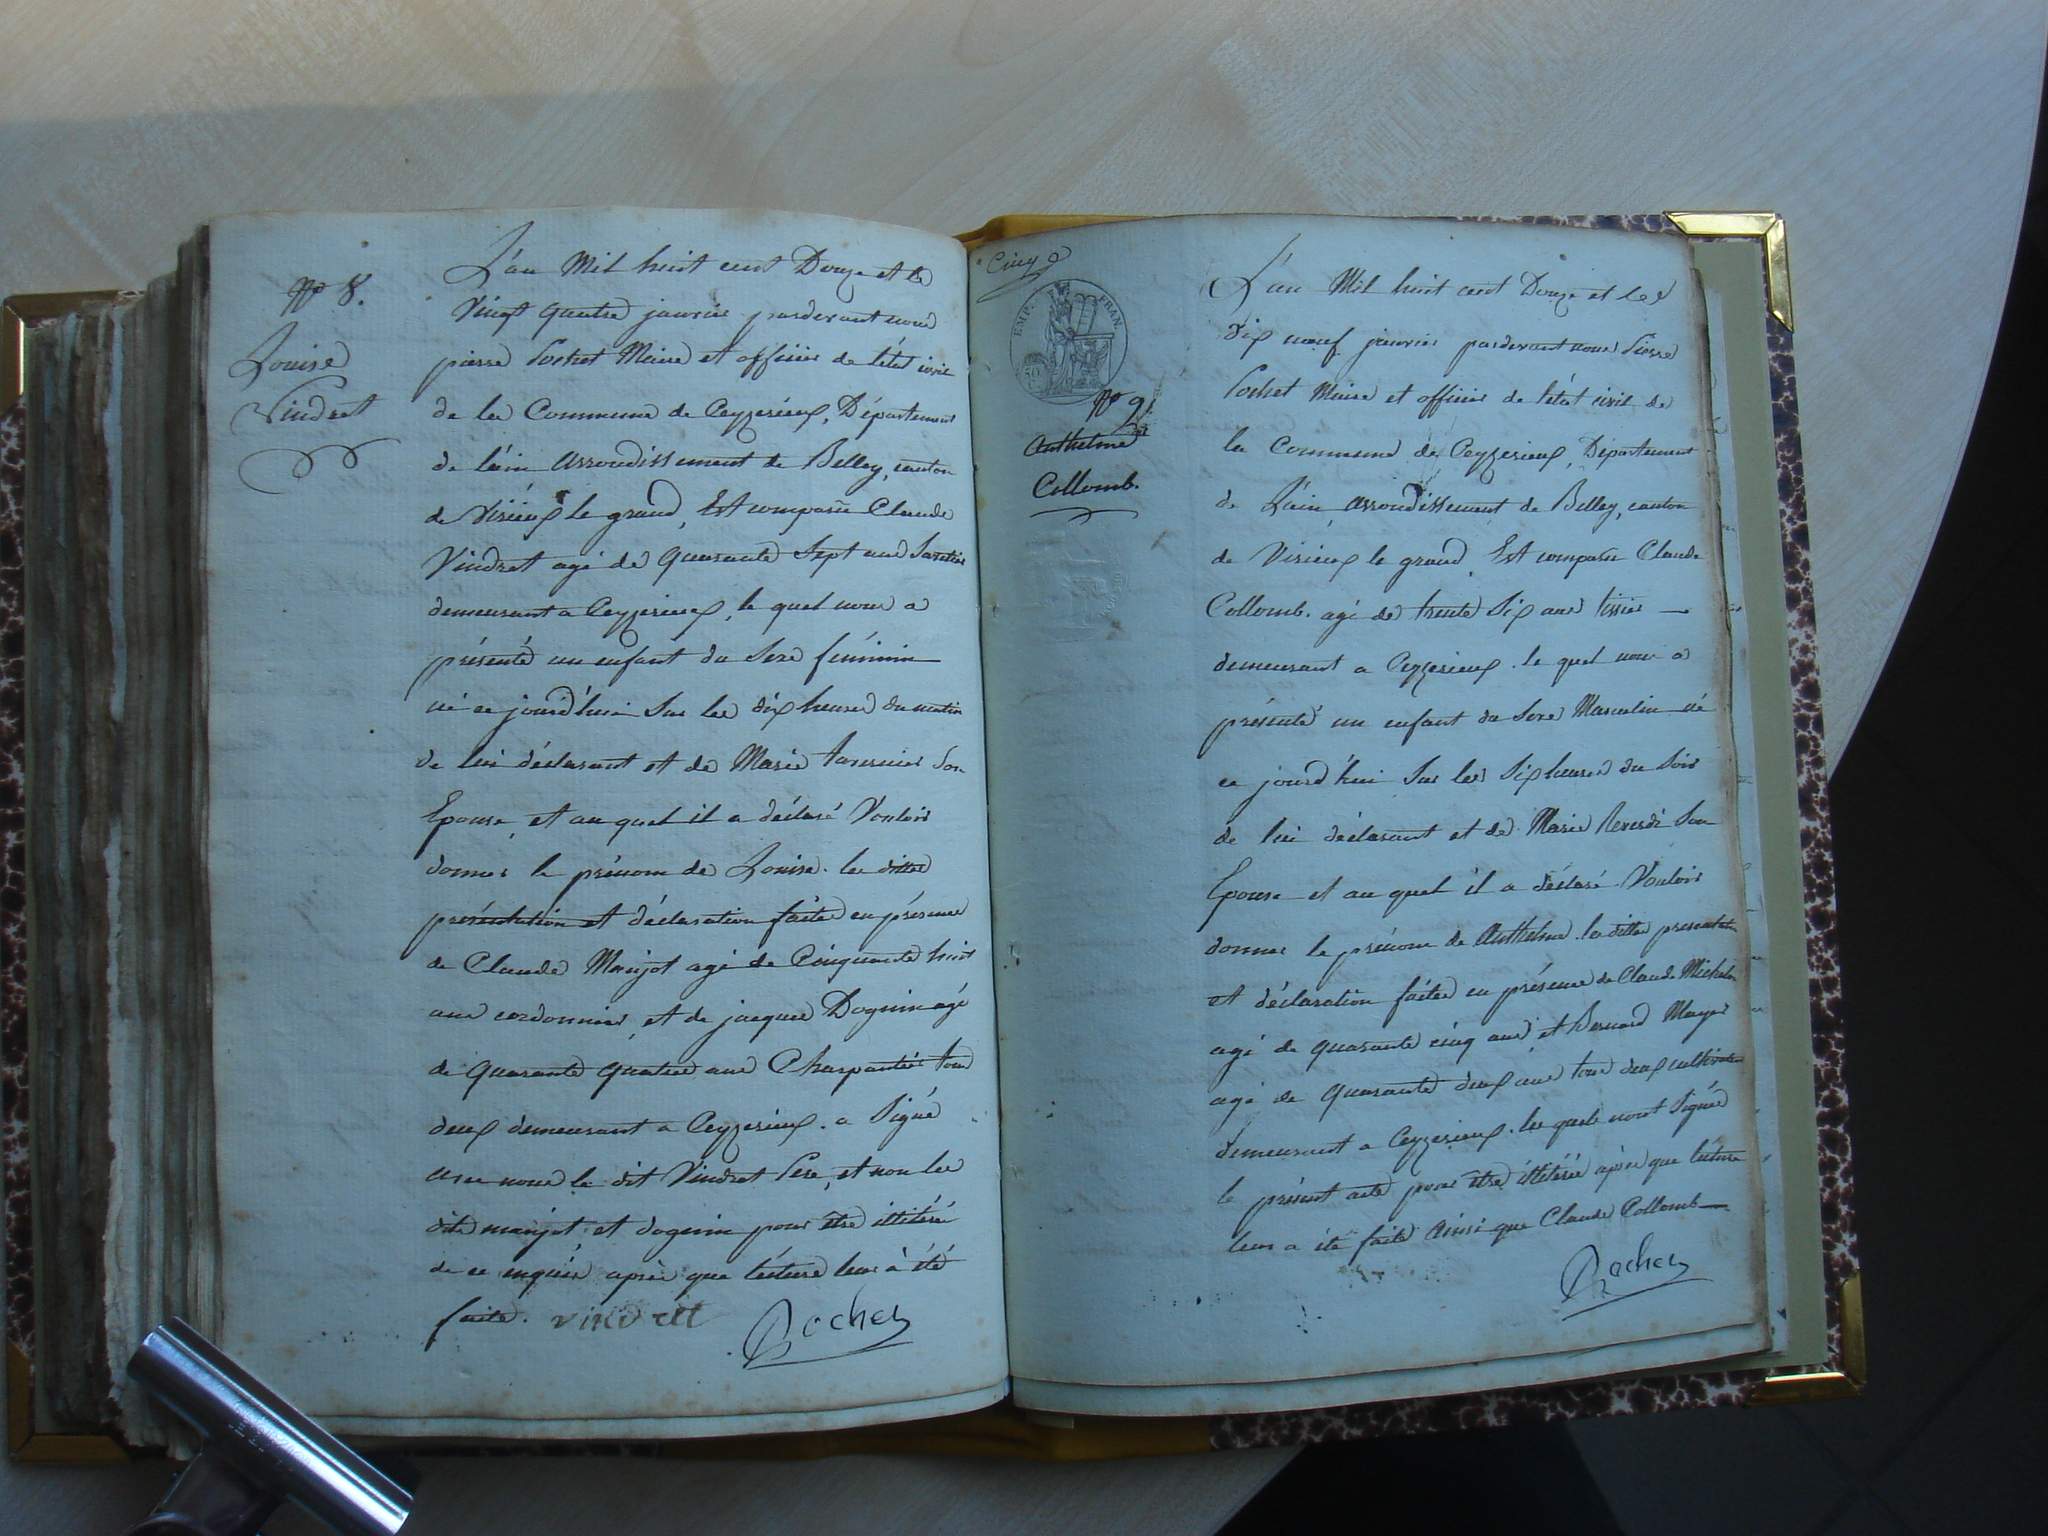 No 8.
Louise
Vindret
L'an Mil huit cent Douze et le
Vingt quatre janvier pardevant nous
pierre Pochet Maire et officier de l'état civil
de la Commune de Ceyzerieux, Département
de l'ain arrondissement de Belley, canton
de Virieux le grand, Est comparu Claude
Vindret agé de quarante Sept ans
demeurant a Ceyzerieux, le quel nous a
présenté un enfant du Sexe féminin
né ce jourd'hui Sur les dix heures du matin
de lui déclarant et de Marie tavernier Son
Epouse, et au quel il a déclaré Vouloir
donner le prénom de Louise. les dittes
présentation et déclaration faites en présence
de Claude Manjot agé de Cinquante huit
ans cordonnier et de jacques Doguin agé
de quarante quatre ans Charpentier tous
deux demeurant a Ceyzerieux. a Signé
avec nous le dit Vindret Pere, et non les
dits manjot et doguin pour être illitéré
de ce enquis après que lécture leur à été
faite. vindrett
Rochez
Cinq
EMP. FRAN.
No 9.
Anthelme
Collomb.
L'an Mil huit cent Douze et les
Dix neuf janvier pardevant nous Pierre
Pochet Maire et officier de l'état civil de
la Commune de Ceyzerieux, Département
de L'ain, arrondissement de Belley, canton
de Virieux le grand Est comparu Claude
Collomb. agé de trente Six ans tissier
demeurant a Ceyzerieux. le quel nous a
présenté un enfant du Sexe Masculin né
ce jourd'hui Sur les Six heures du Soir
de lui déclarant et de Marie Reverdi Son
Epouse et au quel il a déclaré Vouloir
donner le prénom de Anthelme. les dittes presentation
et déclaration faites en présence de Claude Michelon
agé de quarante cinq ans, et Bernard Mayer
agé de quarante deux ans tous deux cultivateurs
demeurant a Ceyzerieux. les quels n'ont Signés
le présent acte pour être illitérés après que lécture
leur a été faite ainsi que Claude Collomb
Rochez